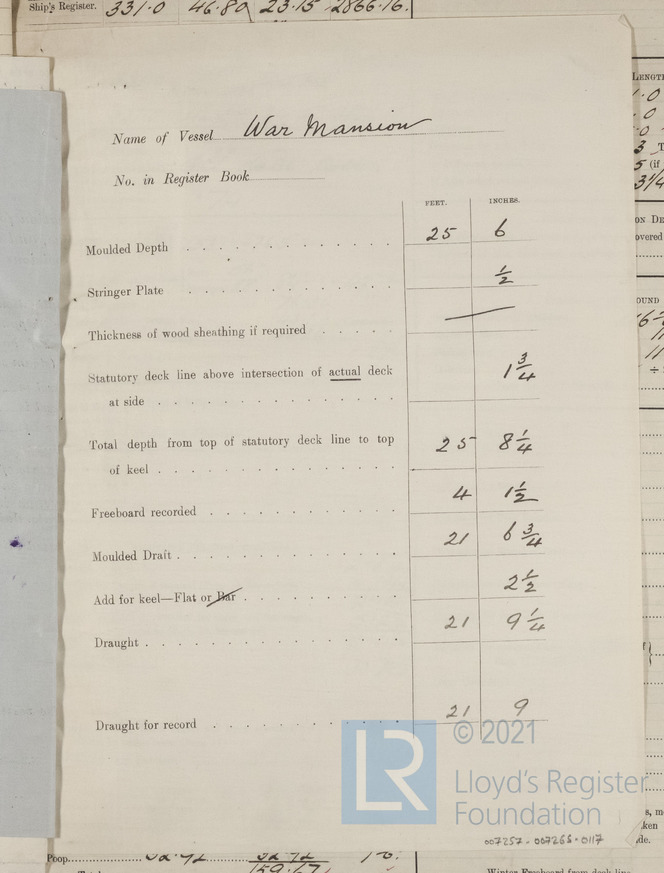 Ship's Register. 331.0 46.80 23.15 2866.16.
Name of Vessel War Mansion
No. in Register Book
FEET. INCHES.
Moulded Depth 25 6
Stringer Plate ½
Thickness of wood sheathing if required —
Statutory deck line above intersection of actual deck
at side 1¾
Total depth from top of statutory deck line to top
of keel 25 8¼
Freeboard recorded 4 1½
Moulded Draft 21 6¾
Add for keel—Flat or Bar 2½
Draught 21 9¼
Draught for record 21 9
LR
© 2021
Lloyd's Register
Foundation
007257-007266-0117
Poop
LENGTH